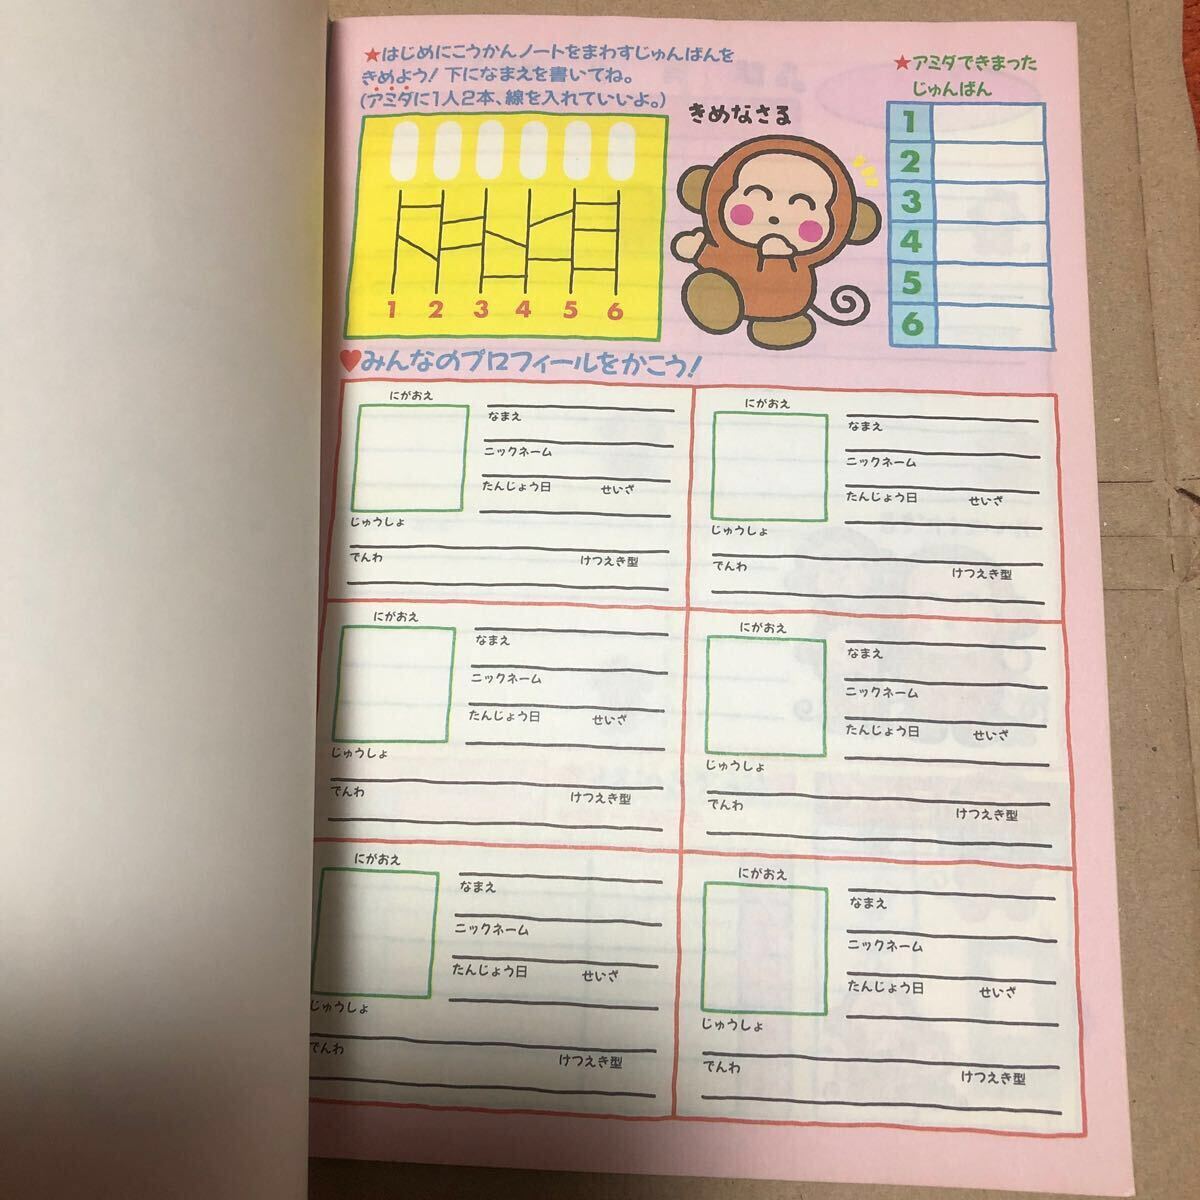 ★はじめにこうかんノートをまわすじゅんばんを
きめよう！下になまえを書いてね。
(アミダに1人2本、線を入れていいよ。)
1 2 3 4 5 6
きめなさる
★アミダできまった
じゅんばん
1
2
3
4
5
6
♥みんなのプロフィールをかこう！
にがおえ
なまえ
ニックネーム
たんじょう日 せいざ
じゅうしょ
でんわ けつえき型
にがおえ
なまえ
ニックネーム
たんじょう日 せいざ
じゅうしょ
でんわ けつえき型
にがおえ
なまえ
ニックネーム
たんじょう日 せいざ
じゅうしょ
でんわ けつえき型
にがおえ
なまえ
ニックネーム
たんじょう日 せいざ
じゅうしょ
でんわ けつえき型
にがおえ
なまえ
ニックネーム
たんじょう日 せいざ
じゅうしょ
でんわ けつえき型
にがおえ
なまえ
ニックネーム
たんじょう日 せいざ
じゅうしょ
でんわ けつえき型